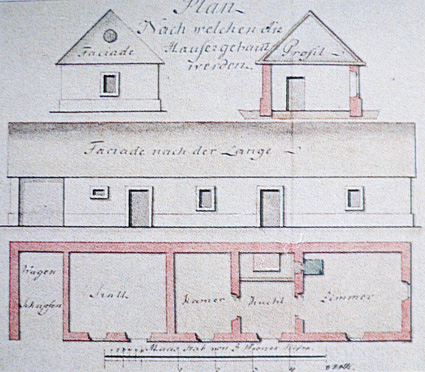 Plan
Nach welchen die
Häuser gebaut
werden
Faciade
Profil
Faciade nach der Länge
Wagen
Schupfen
Stall
Kamer
Kuchl
Zimmer
Maas Stab von 3 Wiener